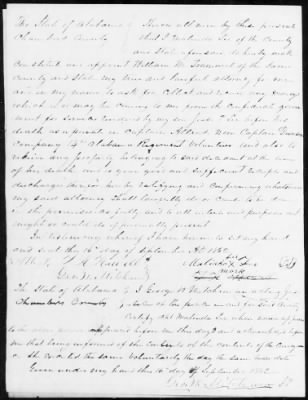 The State of Alabama Know all men by these presents
Chambers County that I Malinda of the County
and State aforesaid do hereby make
constitute and appoint William M. of the same
county and State my true and lawful attorney for me
and in my name to ask for collect and receive any moneys
which is or may be coming to me from the Confederate government
for services rendered by my son before his
death as a private in Captain now Captain
Company Alabama Regiment Volunteers and also to
receive any property belonging to said deceased at the time
of his death and to give good and sufficient receipts and
discharges for me hereby ratifying and confirming whatever
my said attorney shall lawfully do or cause to be done
in the premises as fully and to all intents and purposes as I
might or could do if personally present
In testimony whereof I have hereunto set my hand
and seal this 16th day of September AD 1862
her
Malinda
mark
Geo. W.
The State of Alabama I George W. an acting
Chambers County Justice of the peace in and for said County
certify that Malinda whose name appears
to the above appeared before me this day and acknowledged before
me that being informed of the contents of the
she executed the same voluntarily the day the same bears date
Given under my hand this 16th day of September 1862
Geo. W. JP